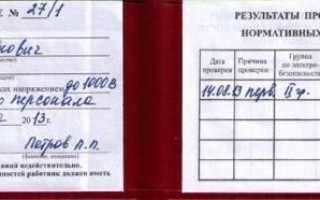 № 27/1
ович
ках напряжением до 1000 В
персонала
2013 г.
Петров П.П.
(фамилия, инициалы)
ания недействительно.
ностей работник должен иметь
РЕЗУЛЬТАТЫ ПРО
НОРМАТИВНЫХ
Дата проверки
Причина проверки
Группа по электро-
безопасности
14.01.13 перв. II гр.